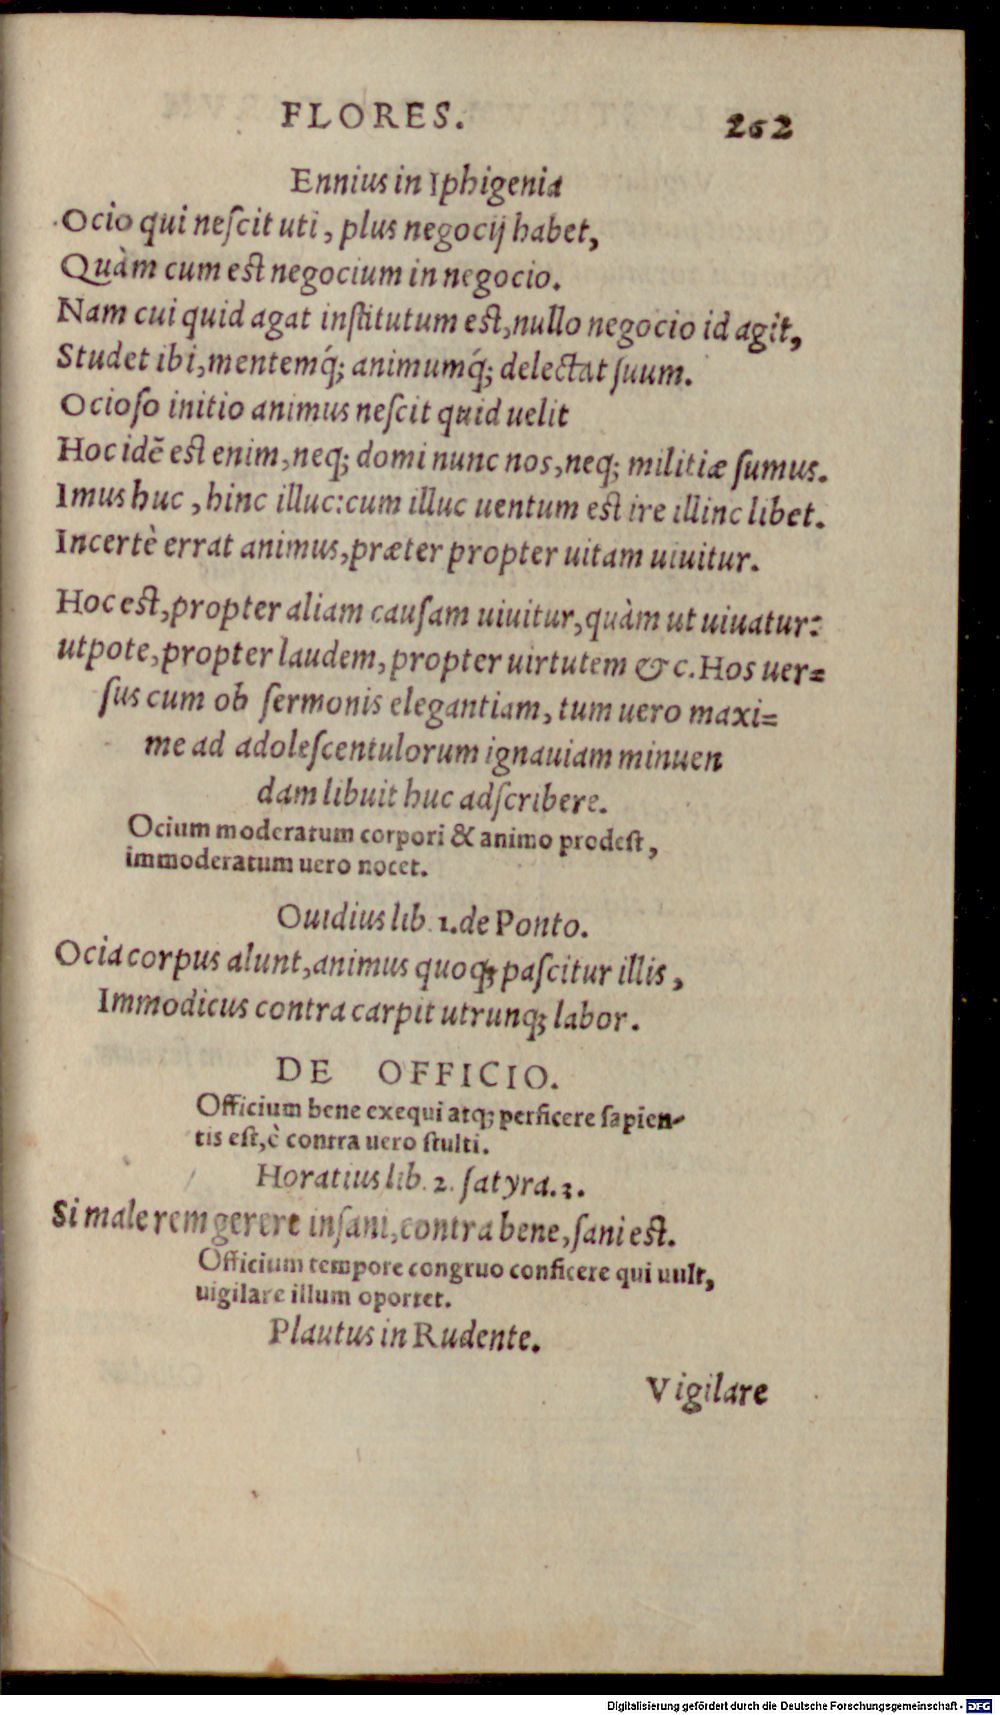 FLORES. 262
Ennius in Iphigenia
Ocio qui neſcit uti, plus negocij habet,
Quàm cum est negocium in negocio.
Nam cui quid agat institutum est, nullo negocio id agit,
Studet ibi, mentemq́; animumq́; delectat ſuum.
Ocioſo initio animus neſcit quid uelit
Hoc idē est enim, neq; domi nunc nos, neq; militiæ ſumus.
Imus huc, hinc illuc: cum illuc uentum est ire illinc libet.
Incertè errat animus, præter propter uitam uiuitur.
Hoc est, propter aliam cauſam uiuitur, quàm ut uiuatur:
utpote, propter laudem, propter uirtutem &c. Hos uer=
ſus cum ob ſermonis elegantiam, tum uero maxi=
me ad adoleſcentulorum ignauiam minuen
dam libuit huc adſcribere.
Ocium moderatum corpori & animo prodeſt,
immoderatum uero nocet.
Ouidius lib. 1. de Ponto.
Ocia corpus alunt, animus quoq; paſcitur illis,
Immodicus contra carpit utrunq; labor.
DE OFFICIO.
Officium bene exequi atq; perficere ſapien-
tis eſt, è contra uero ſtulti.
Horatius lib. 2. ſatyra. 3.
Si male rem gerere inſani, contra bene, ſani est.
Officium tempore congruo conficere qui uult,
uigilare illum oportet.
Plautus in Rudente.
Vigilare
Digitalisierung gefördert durch die Deutsche Forschungsgemeinschaft - DFG